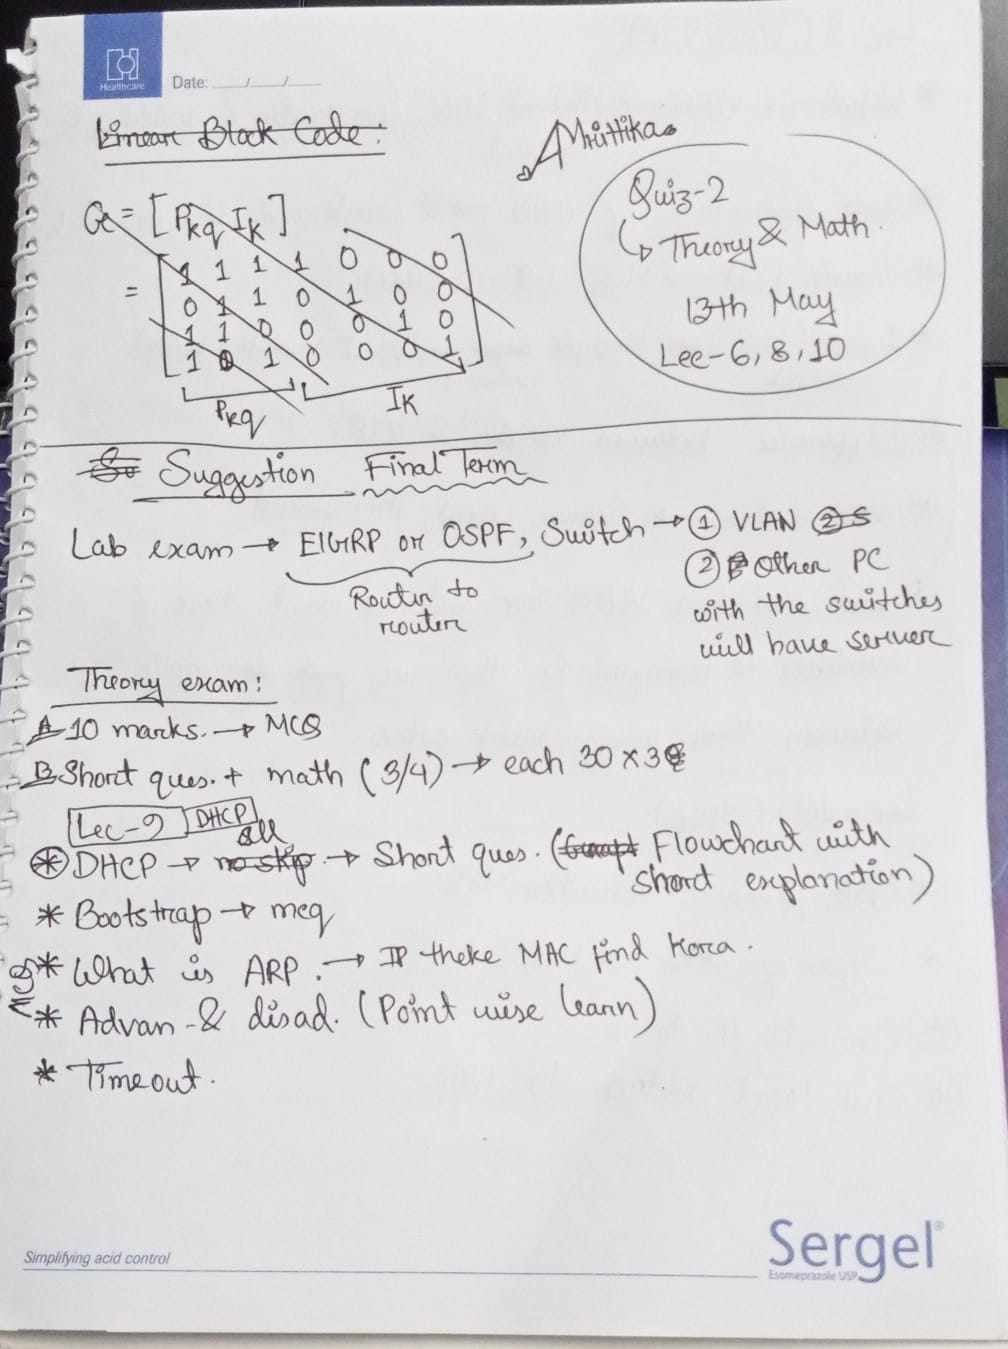 Healthcare
Date: ___/___/___
Linear Block Code:
Mrittika
Quiz-2
↳ Theory & Math.
13th May
Lec-6, 8, 10
G = [Pkq Ik]
= [1 1 1 1 0 0 0
0 1 1 0 1 0 0
1 1 0 0 0 1 0
1 0 1 0 0 0 1]
Pkq Ik
Suggestion Final Term
Lab exam → EIGRP or OSPF, Switch → ① VLAN
Router to
router
② Other PC
with the switches
will have server
Theory exam:
A 10 marks. → MCQ
B Short ques. + math (3/4) → each 30 x 3
Lec-9 DHCP
all
* DHCP → no skip → Short ques. (Flowchart with
short explanation)
* Bootstrap → mcq
* What is ARP. → IP theke MAC find kora.
* Advan - & disad. (Point wise learn)
* Timeout.
Simplifying acid control
Sergel®
Esomeprazole USP